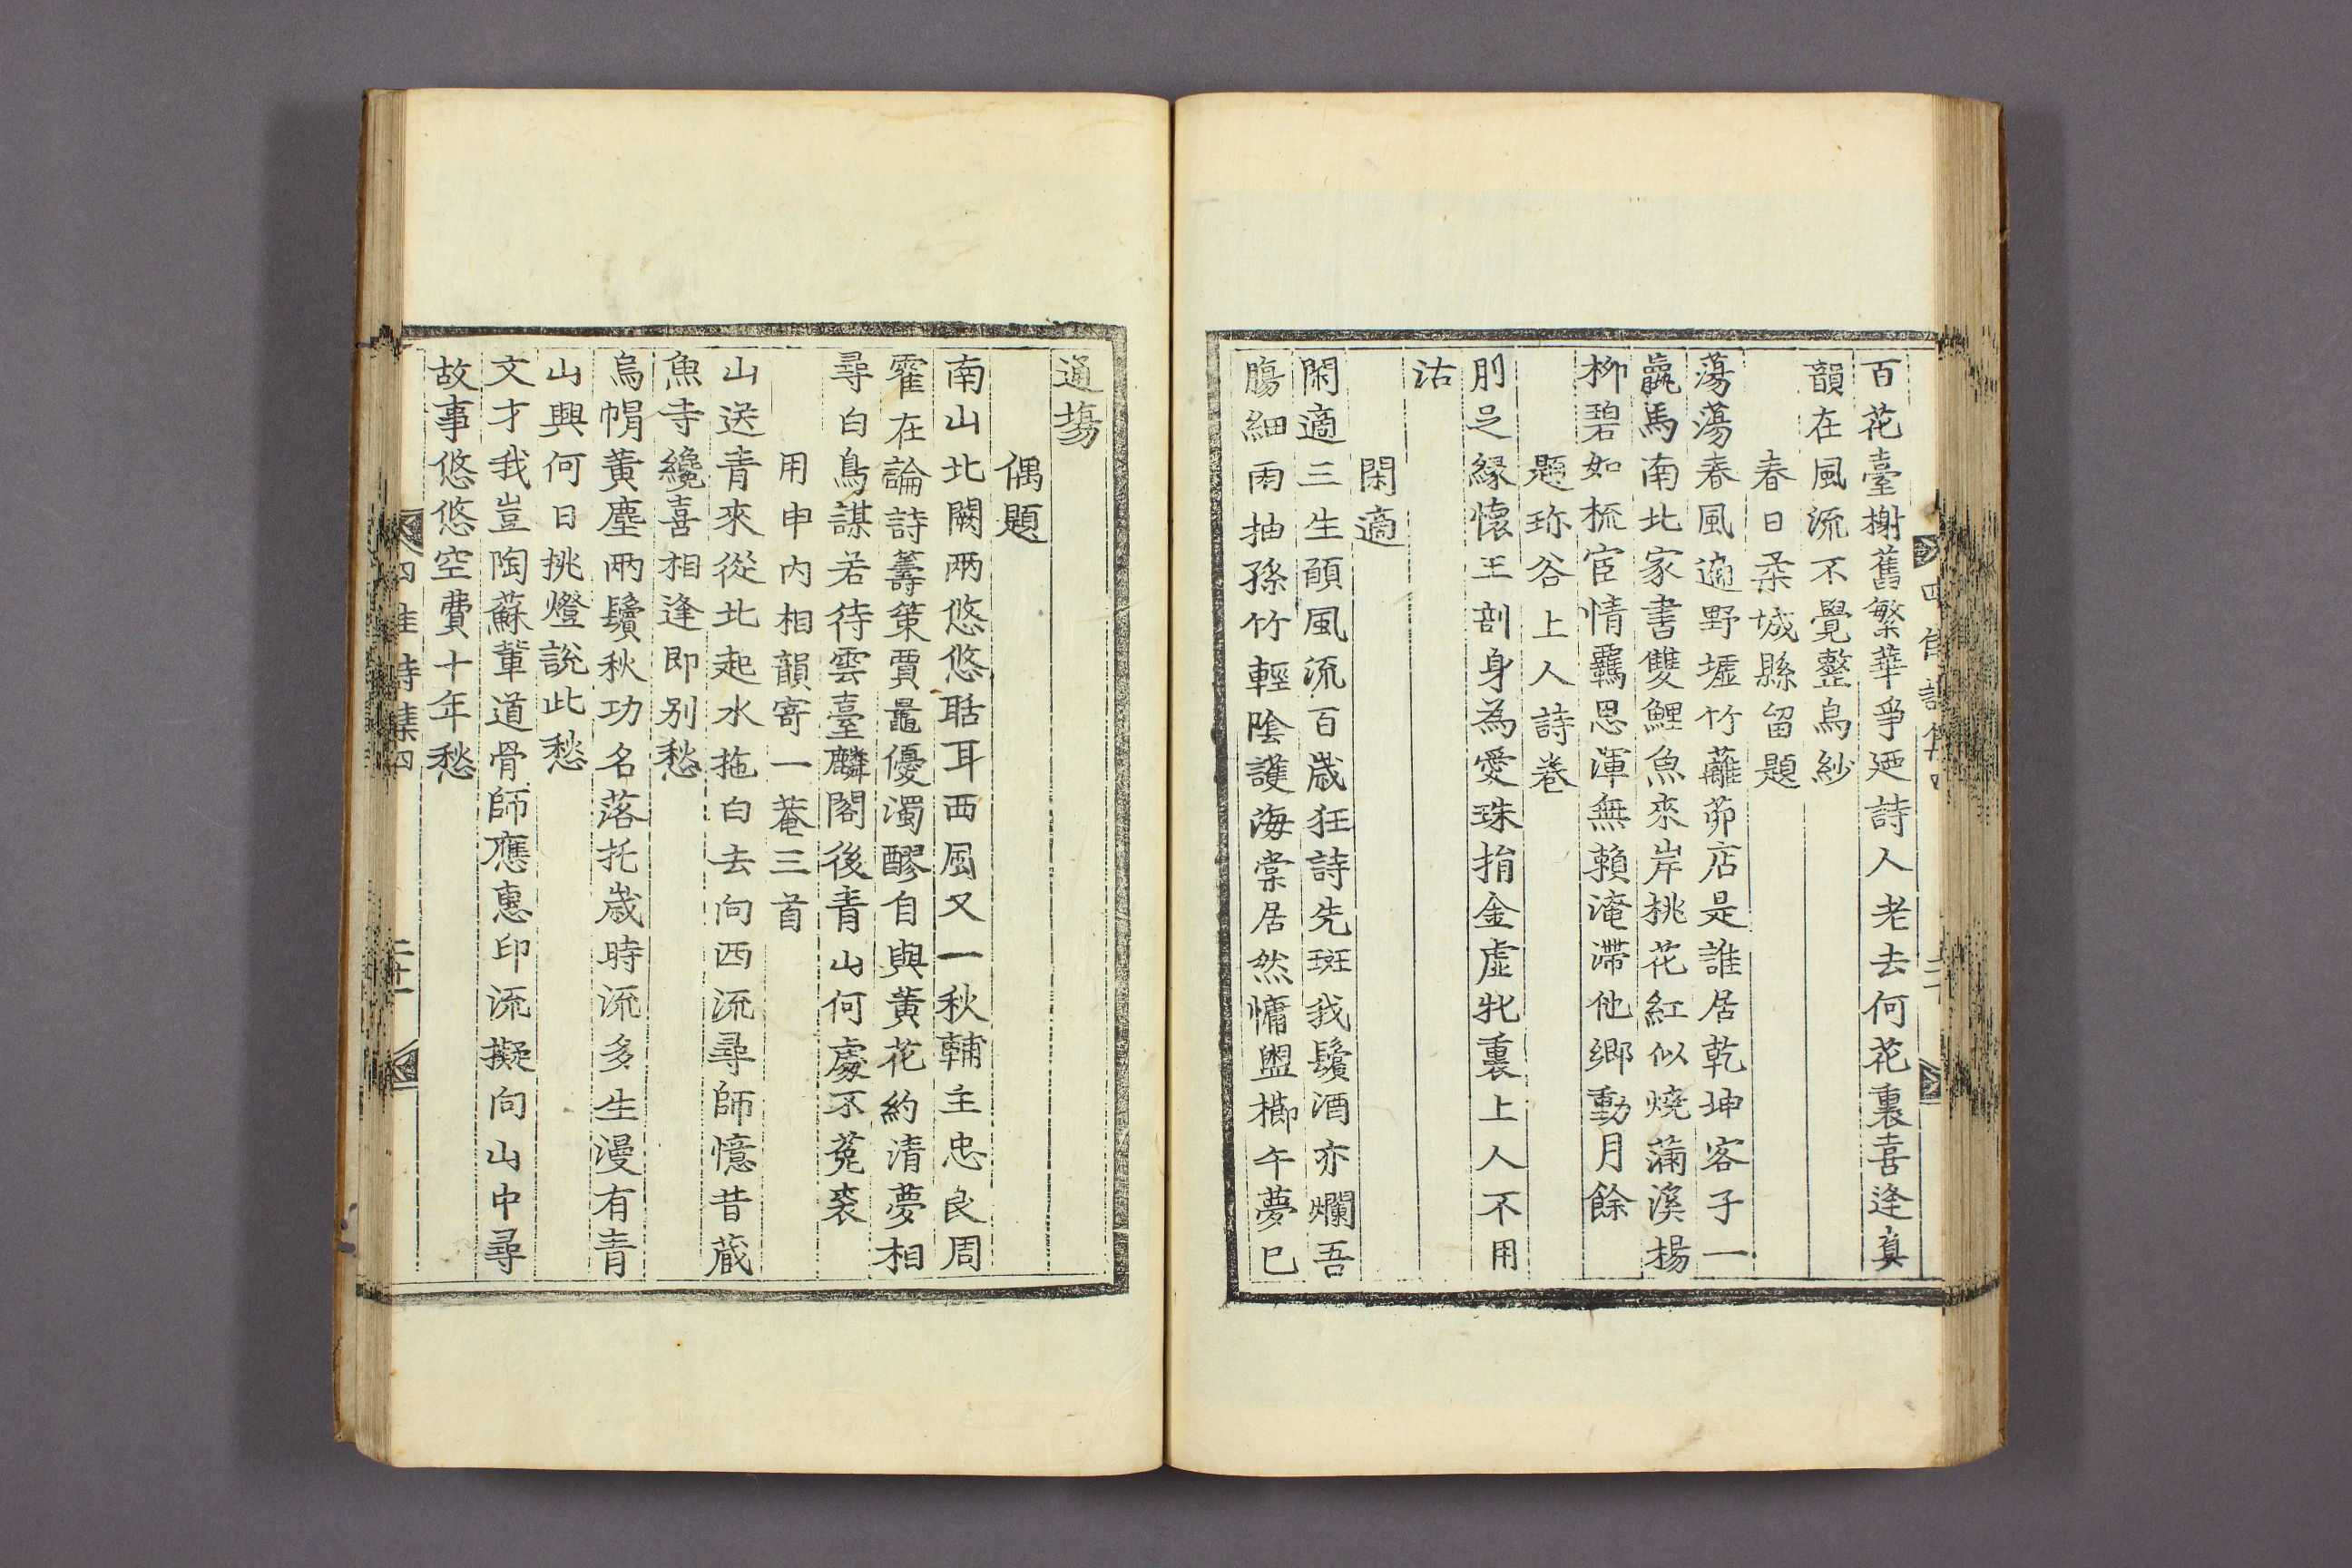 百花臺榭舊繁華爭迓詩人老去何花裏喜逢眞
韻在風流不覺整烏紗
春日柔城縣留題
蕩蕩春風過野墟竹蘺茆店是誰居乾坤客子一
羸馬南北家書雙鯉魚來岸桃花紅似燒蒲溪楊
柳碧如梳宦情羈思渾無賴淹滯他鄉動月餘
題珎谷上人詩卷
刖足緣懷玉剖身為愛珠捐金虛牝裏上人不用
沽
閑適
閑適三生頤風流百歲狂詩先斑我鬢酒亦爛吾
膓細雨抽孫竹輕陰護海棠居然慵盥櫛午夢已
通塲
偶題
南山北闕兩悠悠聒耳西風又一秋輔主忠良周
霍在論詩籌策賈鼂優濁醪自與黃花約清夢相
尋白鳥謀若待雲臺麟閣後青山何處不菟裘
用申內相韻寄一菴三首
山送青來從北起水拖白去向西流尋師憶昔蔵
魚寺纔喜相逢即別愁
烏帽黃塵兩鬢秋功名落托歲時流多生漫有青
山興何日挑燈說此愁
文才我豈陶蘇輩道骨師應惠印流擬向山中尋
故事悠悠空費十年愁